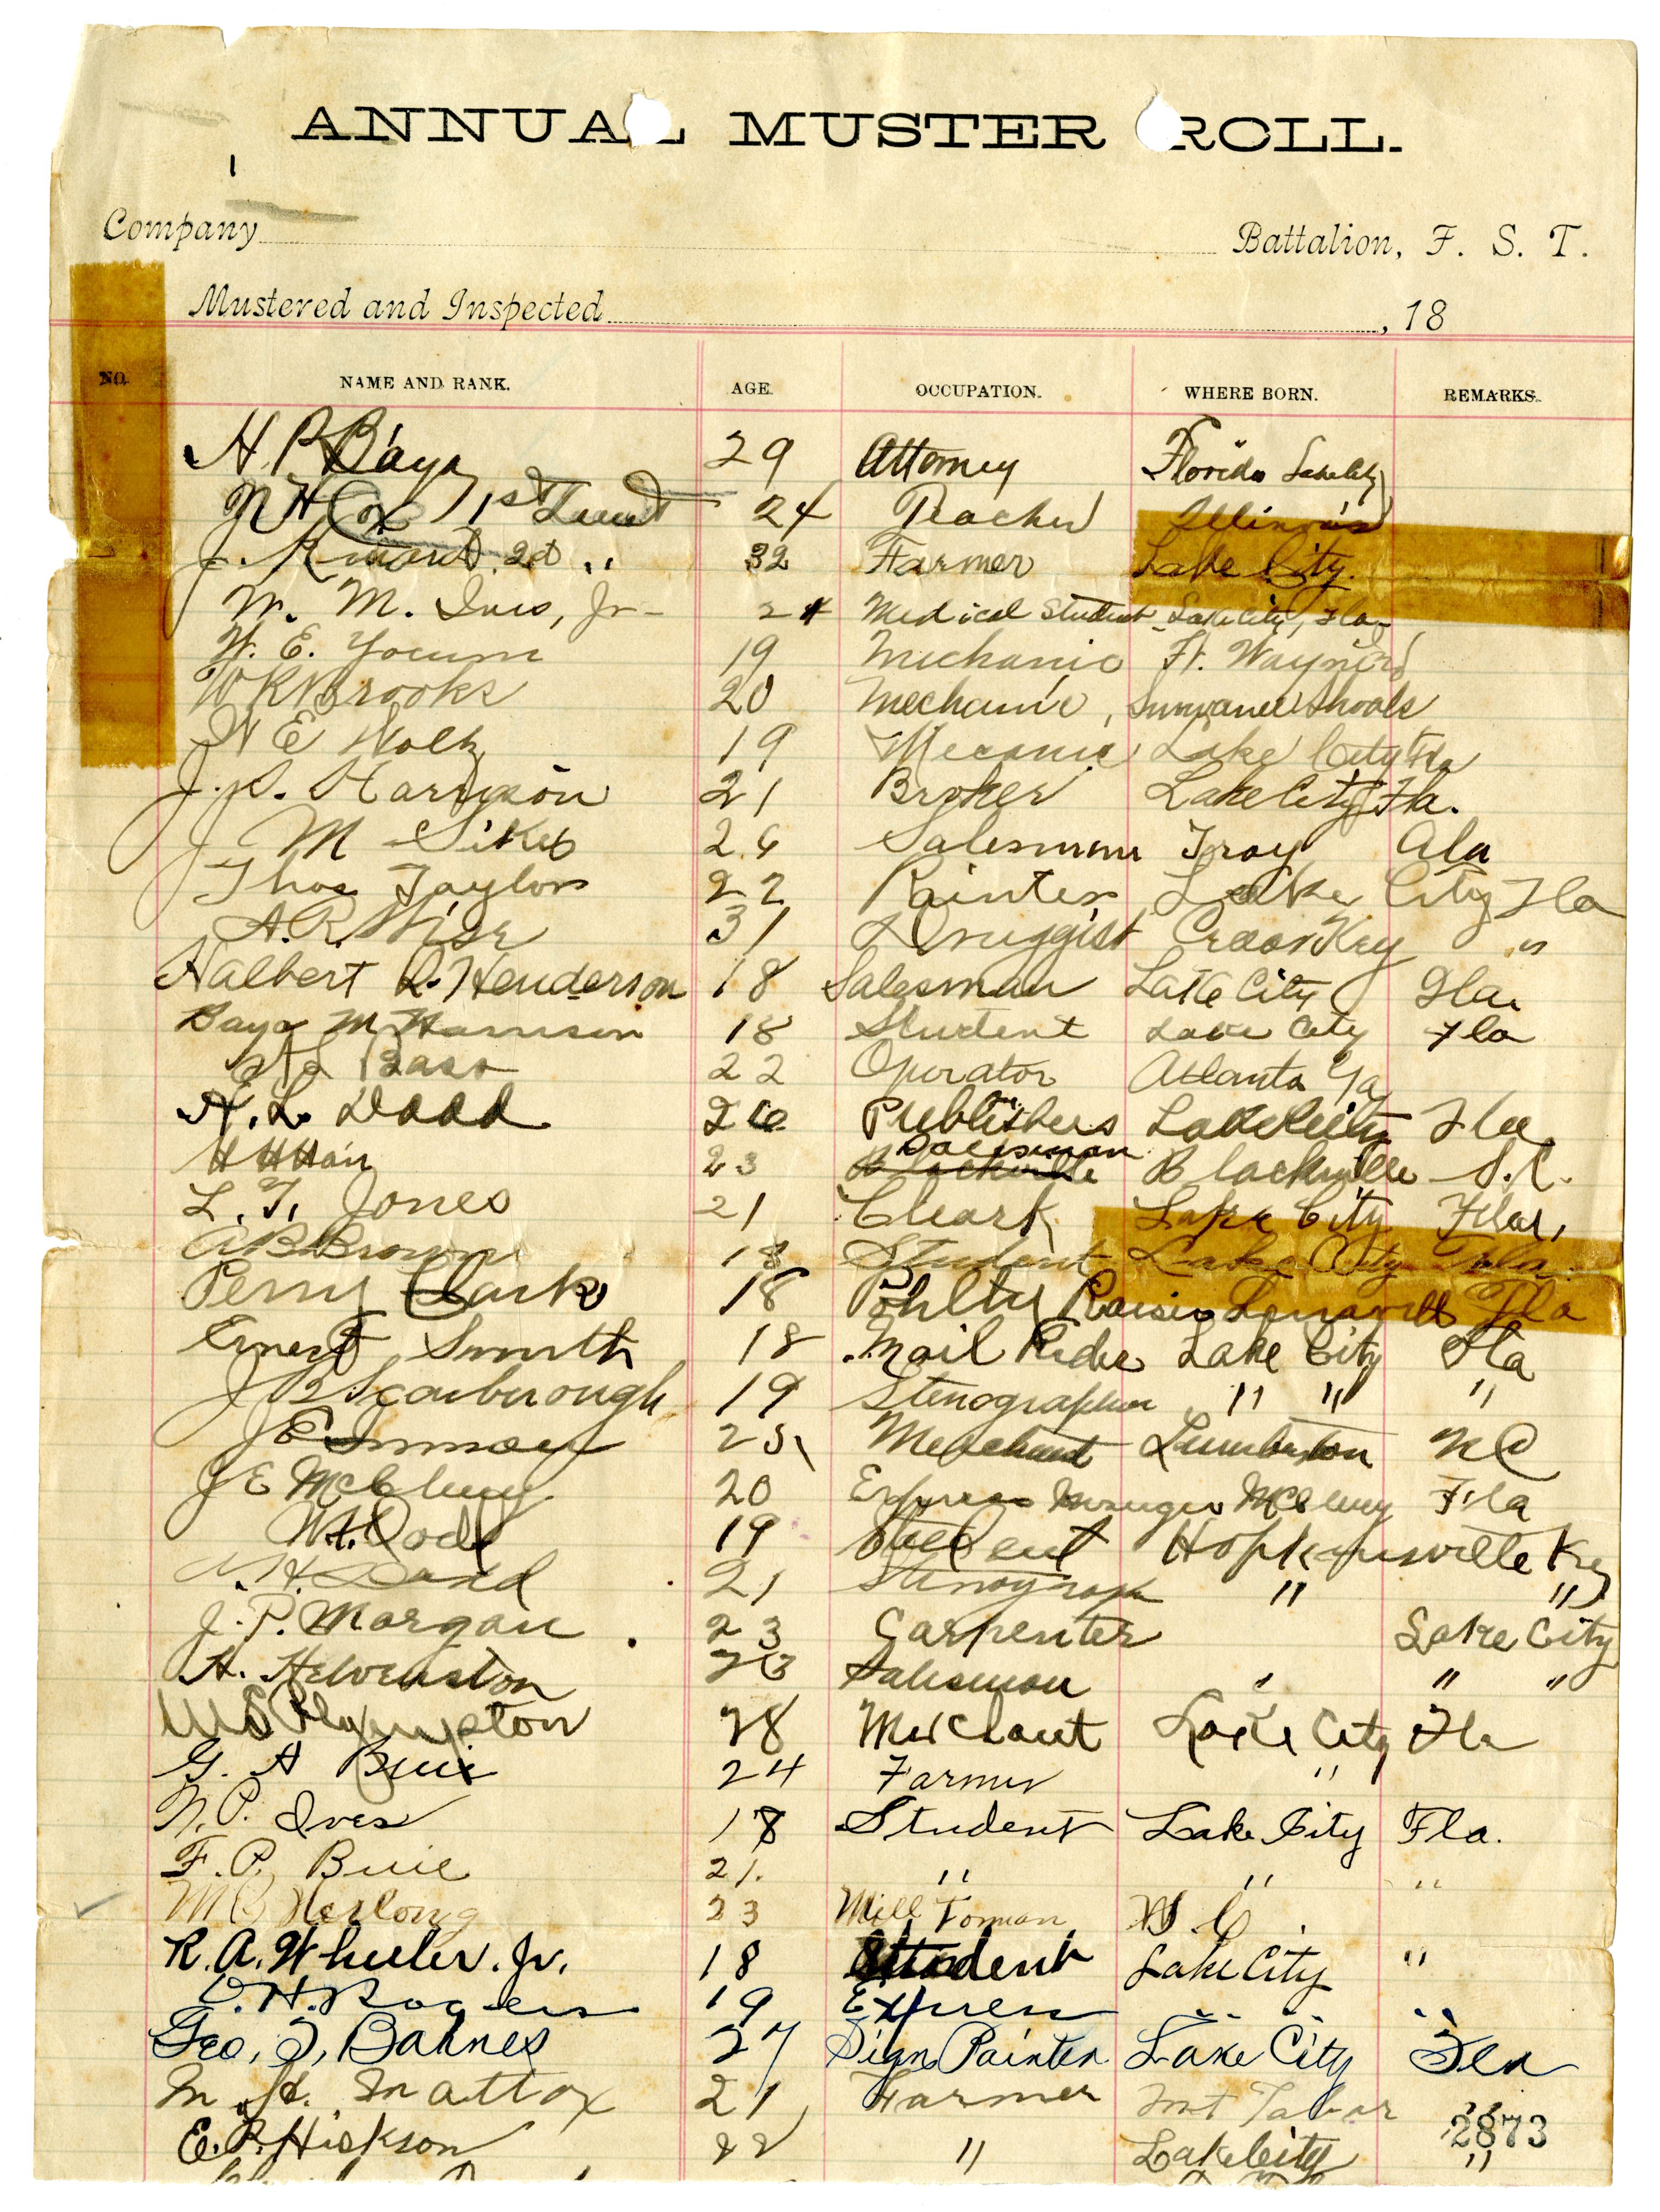 ANNUAL MUSTER ROLL.
Company Battalion, F. S. T.
Mustered and Inspected , 18
NO. NAME AND RANK. AGE. OCCUPATION. WHERE BORN. REMARKS.
H. P. Baya 29 Attorney Florida Lake City
Cox 1st Lieut 24 Teacher Illinois
2d " 32 Farmer Lake City.
W. M. Ives, Jr- 24 Medical Student Lake City, Fla-
W. E. Yocum 19 Mechanic Ft. Wayne
W K Brooks 20 Mechanic, Suwanee Shoals
W E 19 Lake City Fla
J. D. Harrison 21 Broker Lake City Fla.
J M Sikes 26 Salesman Troy Ala
Thos Taylor 22 Painter Lake City Fla
A. R. Wise 31 Druggist Key "
Halbert L. Henderson 18 Salesman Lake City Fla
Baya M Harrison 18 Student Lake City Fla
22 Operator Atlanta Ga
A. L. Dodd 26 Publishers Lake City Fla
Salesman
H H Hair 23 Blackville Blackville S. C.
L. T. Jones 21 Cleark Lake City Fla,
A B Brown 18 Student Lake City Fla.
Perry Clark 18 Pohlty Fla
Ernest Smith 18 Mail Rider Lake City Fla
J B Scarborough 19 Stenographer " " "
J E Inman 25 Merchant Lumberton N C
J E McClung 20 Express Fla
W. Dodd 19 Student Hopkinsville Ky
H David 21 Stenograph " "
J. P. Morgan 23 Carpenter Lake City
A. Helvenston 23 Salesman " " "
Plympton 28 Merchant Lake City Fla
G. A Buie 24 Farmer "
N. P. Ives 18 Student Lake City Fla.
F. P. Buie 21. " " "
M C Herlong 23 Mill Forman C.
R. A. Wheeler. Jr. 18 Student Lake City "
D. H. Rogers 19 Express " " " " "
Geo. T. Bahnes 27 Sign Painter Lake City Fla
M. H. Mattox 21 Farmer Mt Tabor "
2873
E. P. Hickson 22 " Lake City "